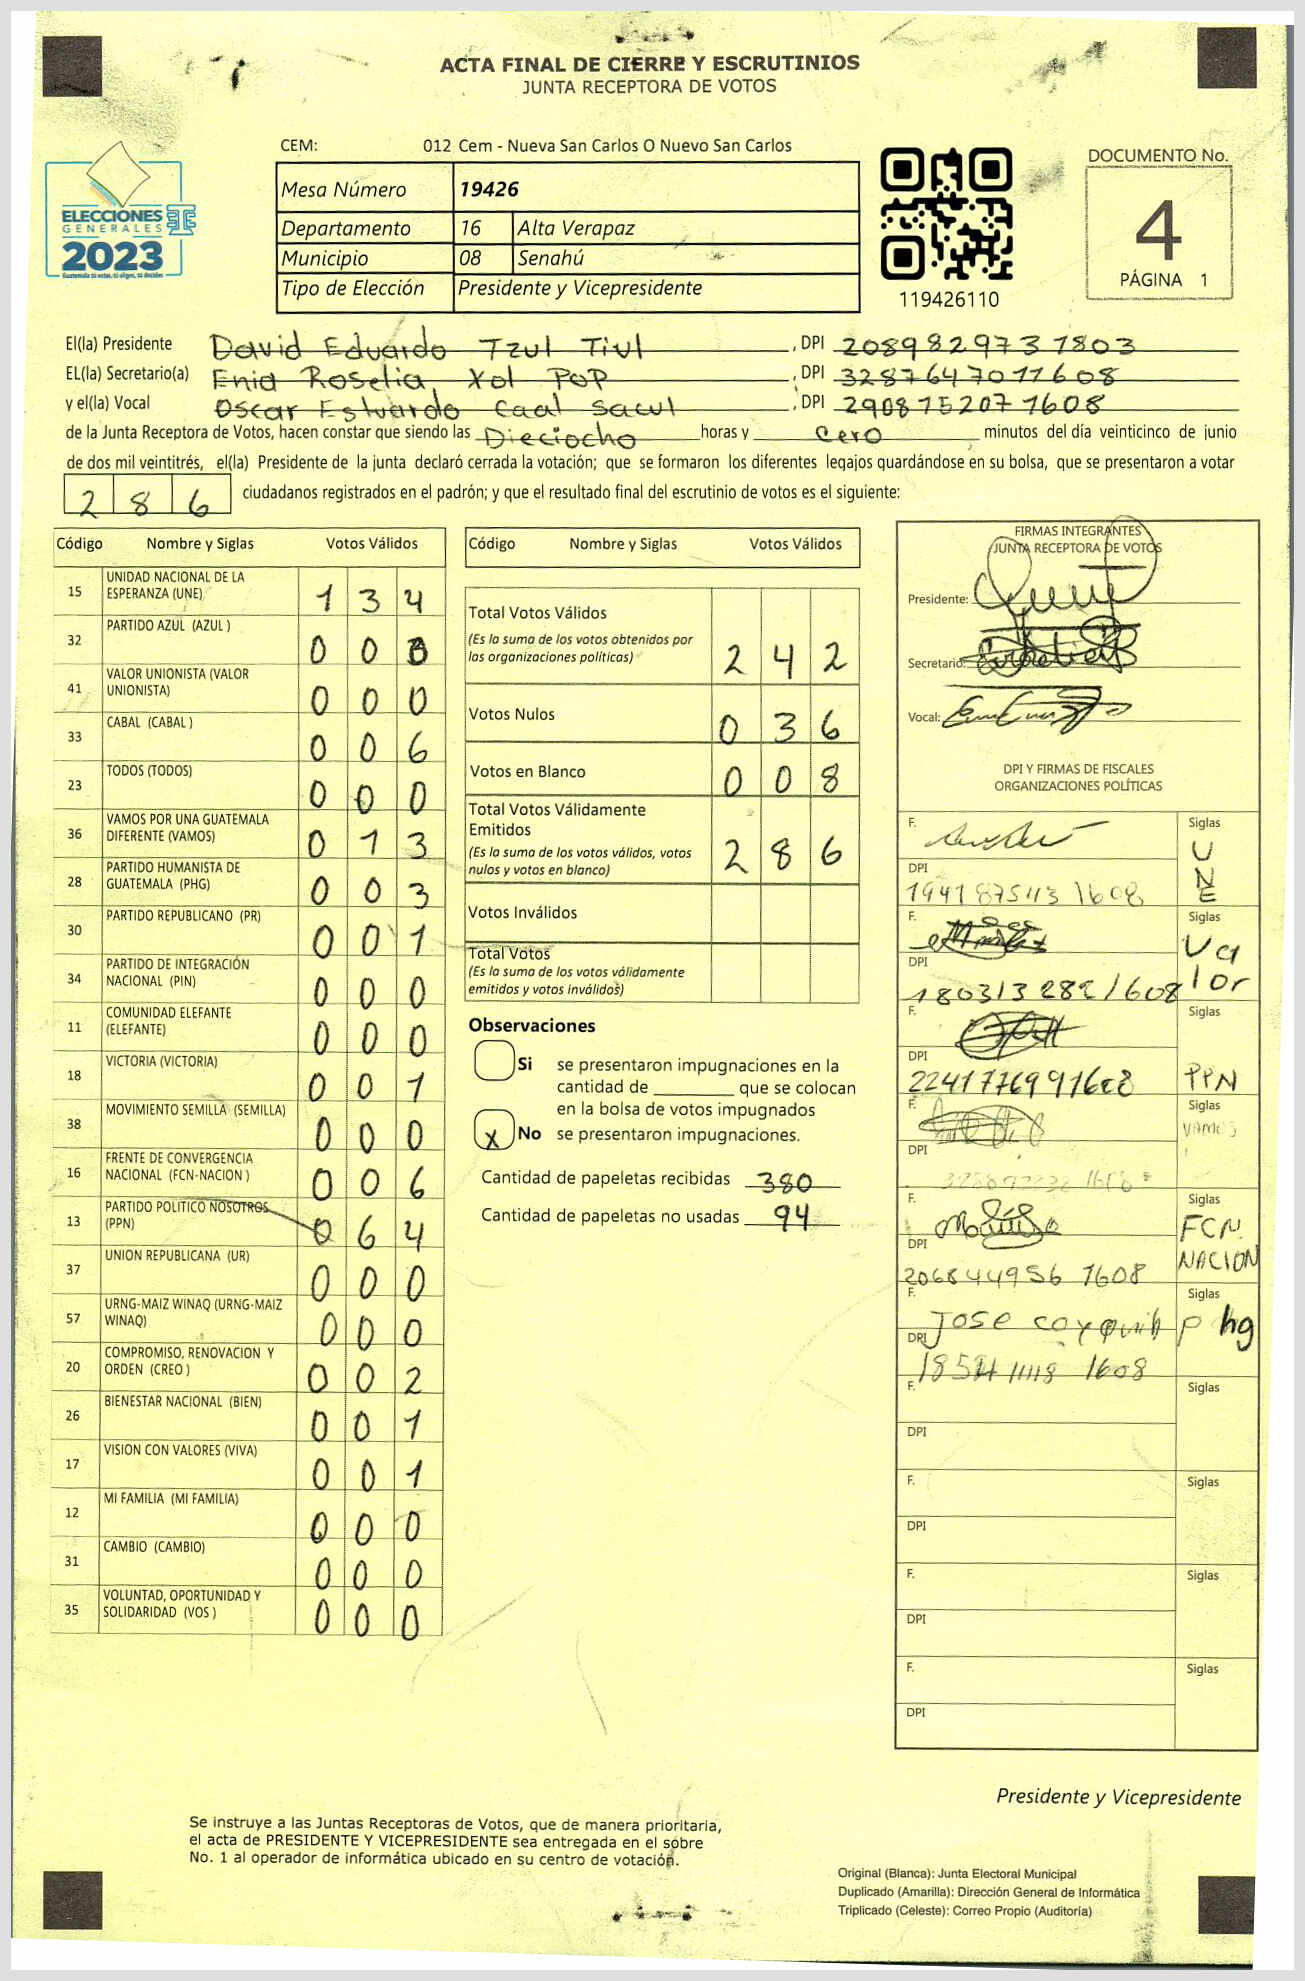 ACTA FINAL DE CIERRE Y ESCRUTINIOS
JUNTA RECEPTORA DE VOTOS
CEM: 012 Cem - Nueva San Carlos O Nuevo San Carlos
ELECCIONES
GENERALES
2023
Mesa Número 19426
Departamento 16 Alta Verapaz
Municipio 08 Senahú
Tipo de Elección Presidente y Vicepresidente
119426110
DOCUMENTO No.
4
PÁGINA 1
El(la) Presidente David Eduardo Tzul Tiul, DPI 2089829731803
EL(la) Secretario(a) Enia Roselia Xol Pop, DPI 3287647011608
y el(la) Vocal Oscar Estuardo Caal Sacul, DPI 2908752071608
de la Junta Receptora de Votos, hacen constar que siendo las Dieciocho horas y Cero minutos del día veinticinco de junio
de dos mil veintitrés, el(la) Presidente de la junta declaró cerrada la votación; que se formaron los diferentes legajos guardándose en su bolsa, que se presentaron a votar
286 ciudadanos registrados en el padrón; y que el resultado final del escrutinio de votos es el siguiente:
Código Nombre y Siglas Votos Válidos
15 UNIDAD NACIONAL DE LA
ESPERANZA (UNE) 1 3 4
32 PARTIDO AZUL (AZUL ) 0 0 0
41 VALOR UNIONISTA (VALOR
UNIONISTA) 0 0 0
33 CABAL (CABAL ) 0 0 6
23 TODOS (TODOS) 0 0 0
36 VAMOS POR UNA GUATEMALA
DIFERENTE (VAMOS) 0 1 3
28 PARTIDO HUMANISTA DE
GUATEMALA (PHG) 0 0 3
30 PARTIDO REPUBLICANO (PR) 0 0 1
34 PARTIDO DE INTEGRACIÓN
NACIONAL (PIN) 0 0 0
11 COMUNIDAD ELEFANTE
(ELEFANTE) 0 0 0
18 VICTORIA (VICTORIA) 0 0 1
38 MOVIMIENTO SEMILLA (SEMILLA) 0 0 0
16 FRENTE DE CONVERGENCIA
NACIONAL (FCN-NACION ) 0 0 6
13 PARTIDO POLITICO NOSOTROS
(PPN) 0 6 4
37 UNION REPUBLICANA (UR) 0 0 0
57 URNG-MAIZ WINAQ (URNG-MAIZ
WINAQ) 0 0 0
20 COMPROMISO, RENOVACION Y
ORDEN (CREO ) 0 0 2
26 BIENESTAR NACIONAL (BIEN) 0 0 1
17 VISION CON VALORES (VIVA) 0 0 1
12 MI FAMILIA (MI FAMILIA) 0 0 0
31 CAMBIO (CAMBIO) 0 0 0
35 VOLUNTAD, OPORTUNIDAD Y
SOLIDARIDAD (VOS ) 0 0 0
Código Nombre y Siglas Votos Válidos
Total Votos Válidos
(Es la suma de los votos obtenidos por
las organizaciones politicas) 2 4 2
Votos Nulos 0 3 6
Votos en Blanco 0 0 8
Total Votos Válidamente
Emitidos
(Es la suma de los votos válidos, votos
nulos y votos en blanco) 2 8 6
Votos Inválidos
Total Votos
(Es la suma de los votos válidamente
emitidos y votos inválidos)
Observaciones
Si se presentaron impugnaciones en la
cantidad de ________ que se colocan
en la bolsa de votos impugnados
X No se presentaron impugnaciones.
Cantidad de papeletas recibidas 380
Cantidad de papeletas no usadas 94
FIRMAS INTEGRANTES
JUNTA RECEPTORA DE VOTOS
Presidente:
Secretario:
Vocal:
DPI Y FIRMAS DE FISCALES
ORGANIZACIONES POLÍTICAS
F. Siglas
UNE
DPI
F. Siglas
Valor
DPI
180313 282 1608
F. Siglas
DPI
2241776991608 PPN
F. Siglas
VAMOS
DPI
F. Siglas
FCN
NACION
DPI
206844956 1608
F. Siglas
Jose phg
DPI
F. Siglas
DPI
F. Siglas
DPI
F. Siglas
DPI
F. Siglas
DPI
Presidente y Vicepresidente
Se instruye a las Juntas Receptoras de Votos, que de manera prioritaria,
el acta de PRESIDENTE Y VICEPRESIDENTE sea entregada en el sobre
No. 1 al operador de informática ubicado en su centro de votación.
Original (Blanca): Junta Electoral Municipal
Duplicado (Amarilla): Dirección General de Informática
Triplicado (Celeste): Correo Propio (Auditoría)